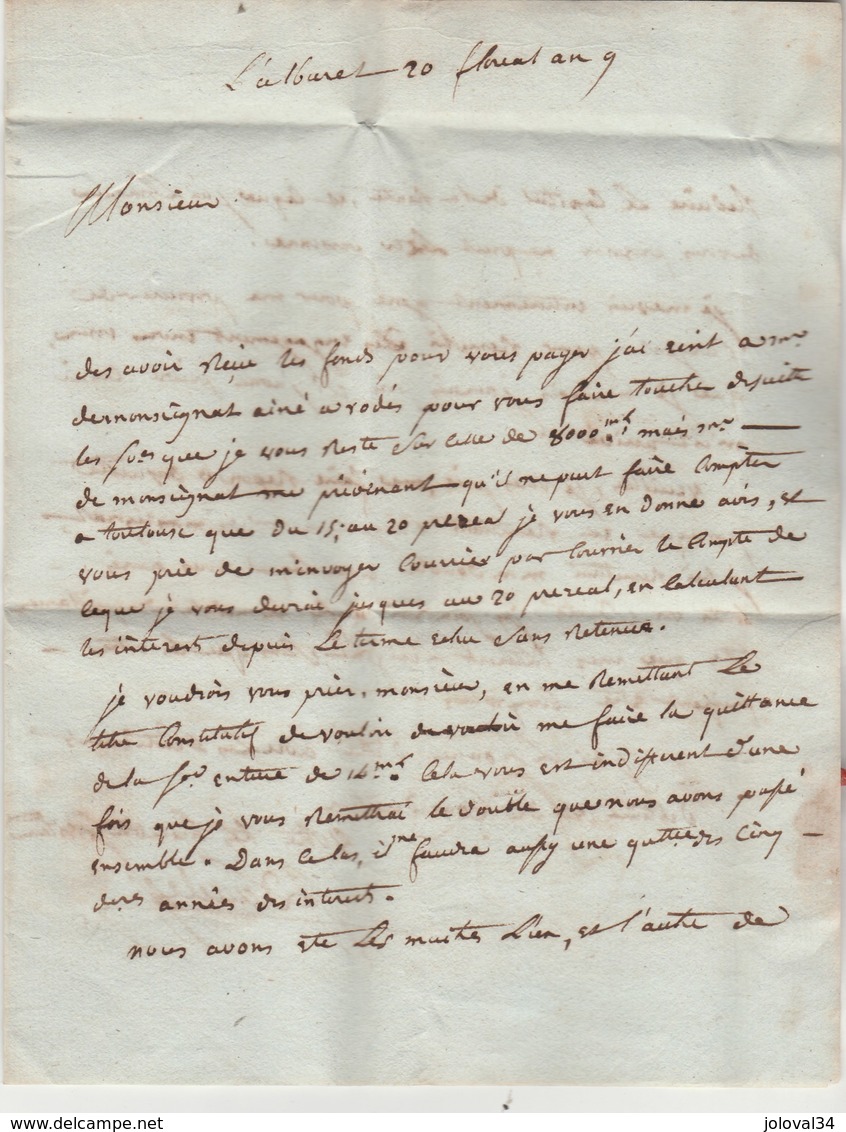 L'albaret 20 floreal an 9
Monsieur
des avoir reçu les fonds pour vous payer j'ai ecrit a mr
demonseignat ainé a rodés pour vous faire toucher desuite
les que je vous reste sur celle de 8000 mais mr
de monseignat me prévenant qu'il ne peut faire compter
a toulouse que du 15, au 20 prereal je vous en donne avis, et
vous prie de m'envoyer courrier par courrier le compte de
ceque je vous devrai jusques au 20 prereal, en calculant
les interets depuis le terme echu sans retenue.
je voudrois vous prier, monsieur, en me remettant le
titre constitutif de vouloir me faire la quittance
de la entiere de cela vous est indifferent d'une
fois que je vous remettrai le double que nous avons passé
ensemble. Dans ce cas, il me faudra aussy une des cinq
dres années des interets.
nous avons ete les maitres l'un, et l'autre de
joloval34